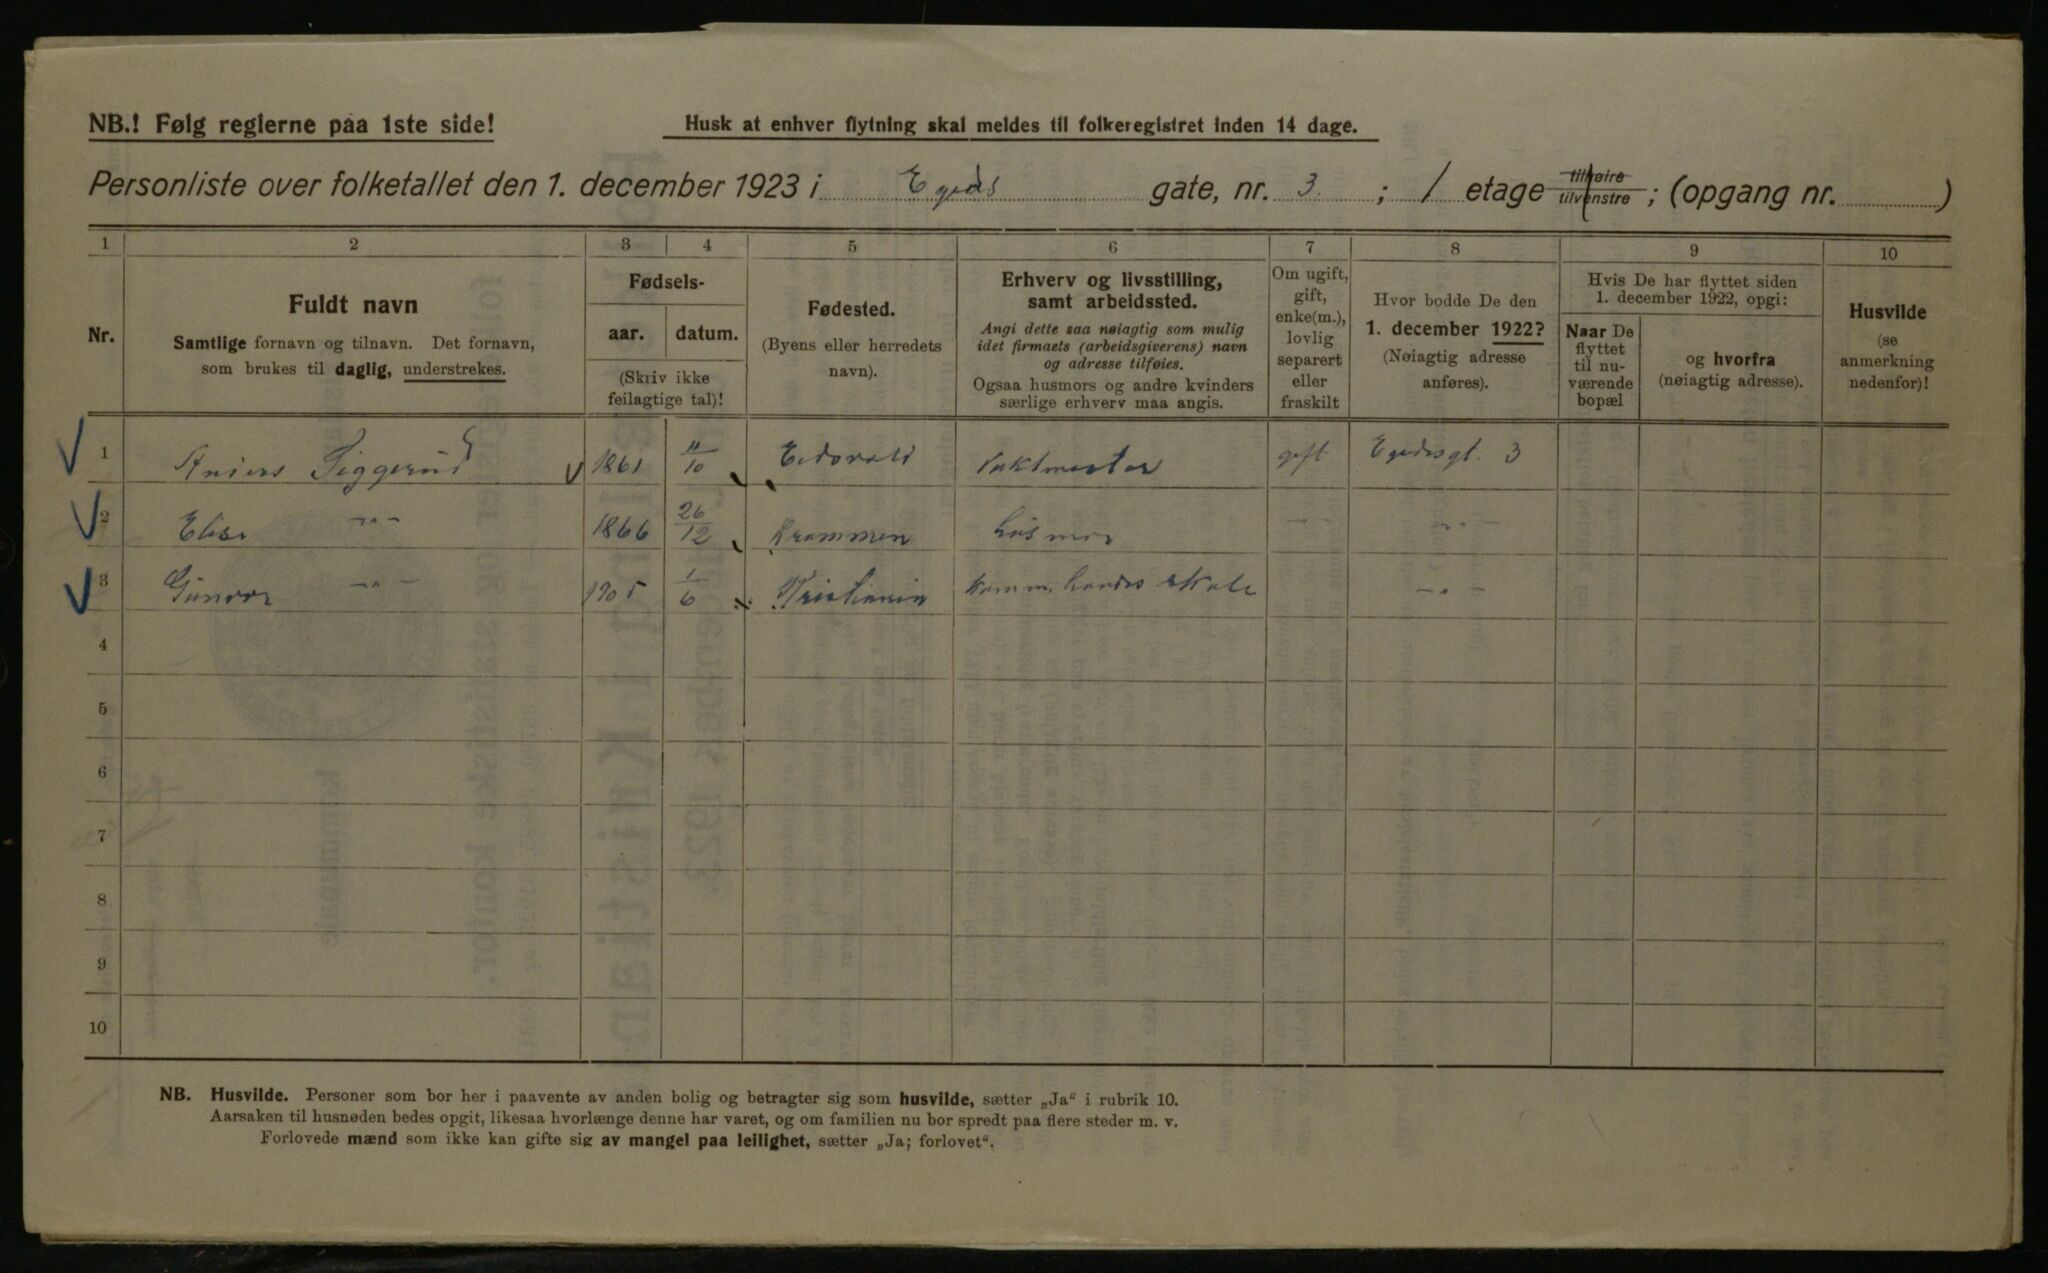 NB.! Følg reglerne paa 1ste side!
Husk at enhver flytning skal meldes til folkeregistret inden 14 dage.
Personliste over folketallet den 1. december 1923 i Egeds gate, nr. 3 ; 1 etage tilhøire tilvenstre ; (opgang nr. )
1 2 3 4 5 6 7 8 9 10
Nr.
Fuldt navn
Samtlige fornavn og tilnavn. Det fornavn,
som brukes til daglig, understrekes.
Fødsels-
aar. datum.
(Skriv ikke
feilagtige tal)!
Fødested.
(Byens eller herredets
navn).
Erhverv og livsstilling,
samt arbeidssted.
Angi dette saa nøiagtig som mulig
idet firmaets (arbeidsgiverens) navn
og adresse tilføies.
Ogsaa husmors og andre kvinders
særlige erhverv maa angis.
Om ugift,
gift,
enke(m.),
lovlig
separert
eller
fraskilt
Hvor bodde De den
1. december 1922?
(Nøiagtig adresse
anføres).
Hvis De har flyttet siden
1. december 1922, opgi:
Naar De
flyttet
til nu-
værende
bopæl
og hvorfra
(nøiagtig adresse).
Husvilde
(se
anmerkning
nedenfor)!
1 Anders Siggerud 1861 11/10 Eidsvold Vaktmester gift Egedesgt. 3
2 Elise -"- 1866 26/12 Drammen Husmor -"- -"-
3 Gunvor -"- 1905 1/6 Kristiania Komm. Handels skole -"-
4
5
6
7
8
9
10
NB. Husvilde. Personer som bor her i paavente av anden bolig og betragter sig som husvilde, sætter „Ja" i rubrik 10.
Aarsaken til husnøden bedes opgit, likesaa hvorlænge denne har varet, og om familien nu bor spredt paa flere steder m. v.
Forlovede mænd som ikke kan gifte sig av mangel paa leilighet, sætter „Ja; forlovet".